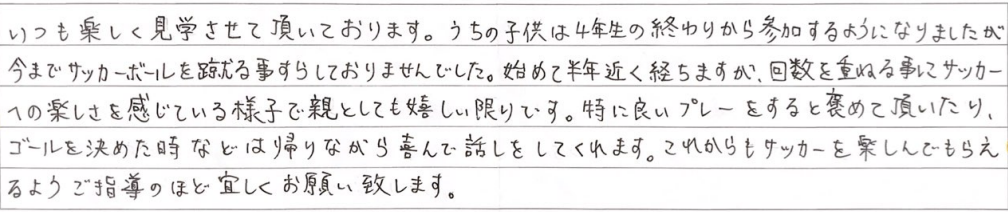 いつも楽しく見学させて頂いております。うちの子供は4年生の終わりから参加するようになりましたが
今までサッカーボールを蹴る事すらしておりませんでした。始めて半年近く経ちますが、回数を重ねる事にサッカー
への楽しさを感じている様子で親としても嬉しい限りです。特に良いプレーをすると褒めて頂いたり、
ゴールを決めた時などは帰りながら喜んで話しをしてくれます。これからもサッカーを楽しんでもらえ
るようご指導のほど宜しくお願い致します。